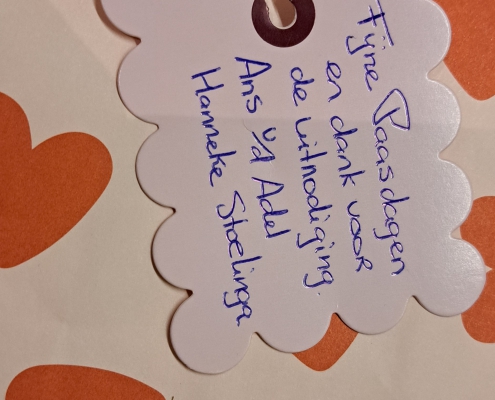 Fijne Paasdagen
en dank voor
de uitnodiging.
Ans v/d Adel
Hanneke Stoelinga